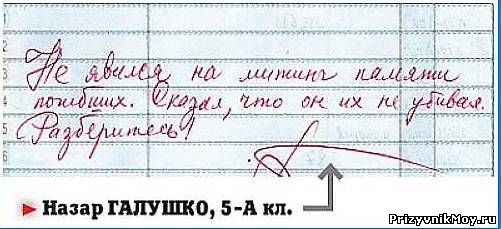 1
2
3
4
5
6
Не явился на митинг памяти
погибших. Сказал, что он их не убивал.
Разберитесь!
► Назар ГАЛУШКО, 5-А кл.
PrizyvnikMoy.ru